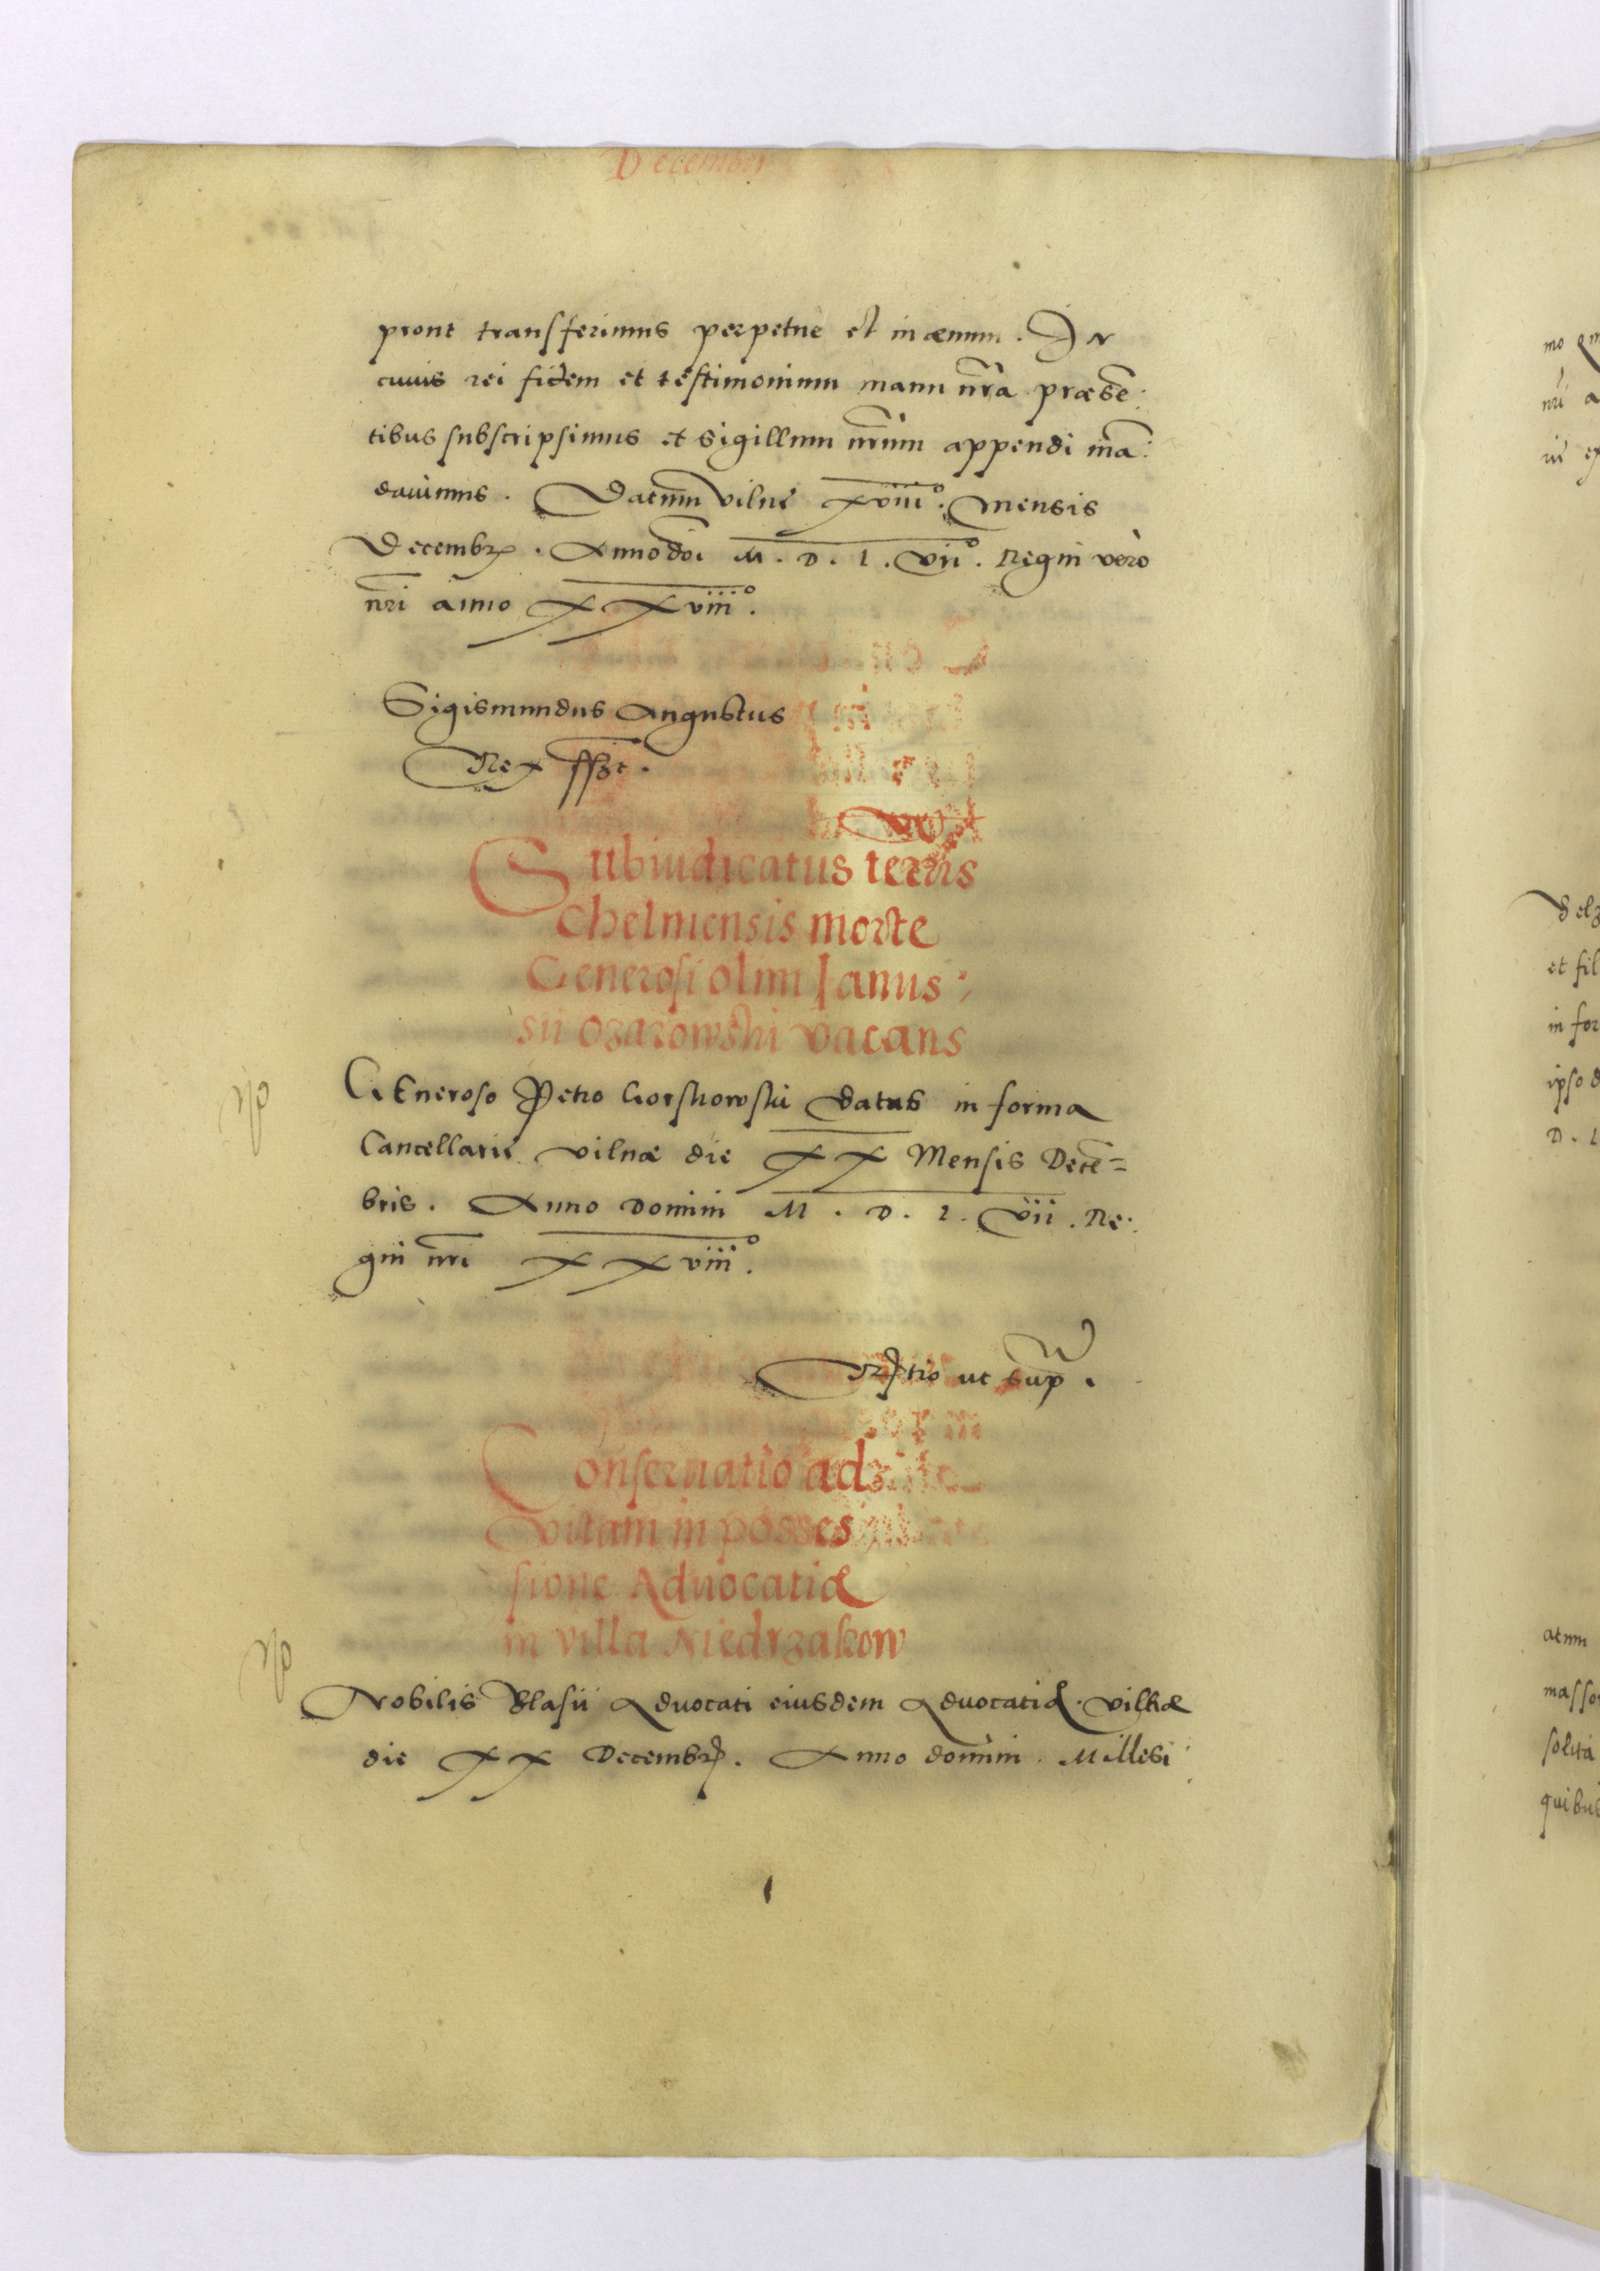 December
prout transferimus perpetue et in ævum. In
cuius rei fidem et testimonium manu nr̃a præsẽ:
tibus subscripsimus et sigillum nr̃um appendi mã:
dauimus. Datum Vilnę XVIII°. mensis
Decembr̃. Anno dõi M.D.L.VII°. Regni vero
nr̃i anno XXVIII°.
Sigismundus Augustus
Rex sszt.
Subiudicatus terrẹ
Chelmensis morte
Generosi olim Janus:
sii Ozarowski vacans
np
GEneroso Petro Gorskowski datus in forma
Cancellarię Vilnæ die XX Mensis Decẽ=
bris. Anno Domini M.D.L.VII. Re:
gni nr̃i XXVIII°.
Rl̃atio ut sup̃.
Conseruatio ad
vitam in posses
sione Aduocatiæ
in villa Niedrzakow
np
Nobilis Blasii Aduocati eiusdem Aduocatię. Vilnæ
die XX Decembr̃. Anno domini. Millesi
mo
et fil
in for
ipso d
D. L
solita
quibus